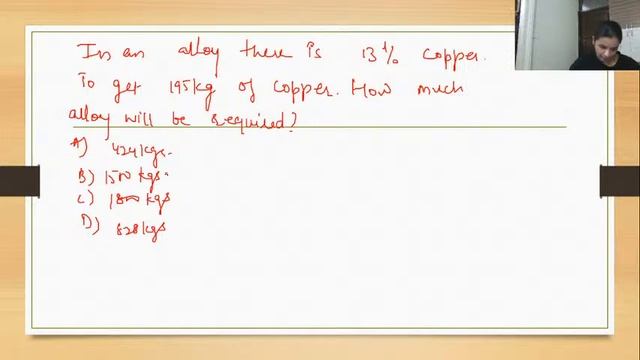 In an alloy there is 13% copper.
To get 195kg of copper. How much
alloy will be required?
A) 424kgs.
B) 1500 kgs.
C) 1800 kgs
D) 828kgs